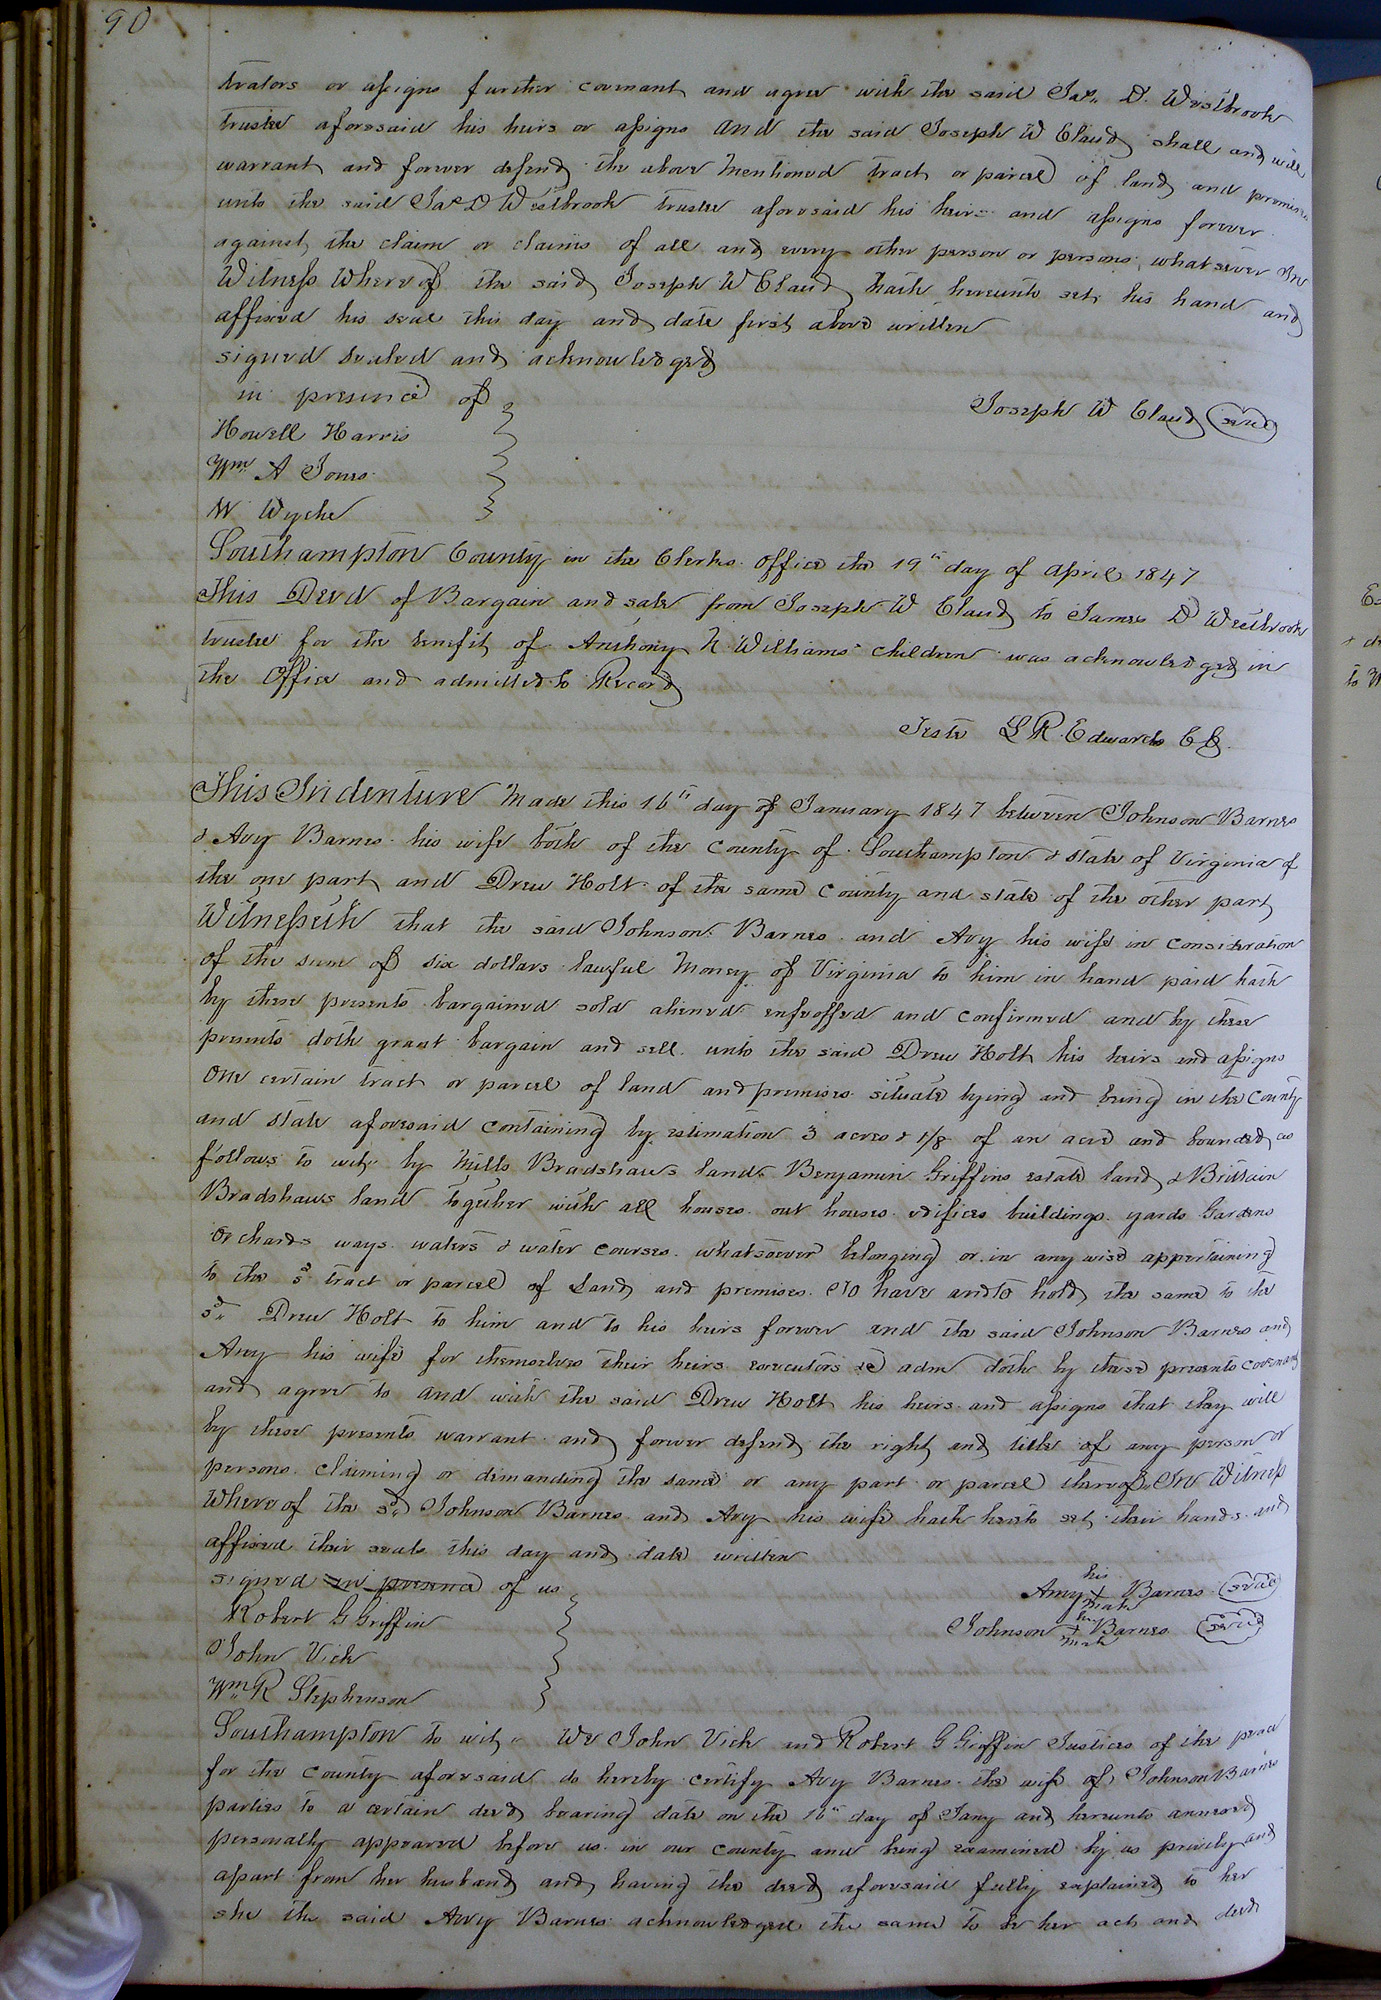 90
trators or assigns further covenant and agree with the said Jas. D. Westbrook
trustee aforesaid his heirs or assigns and the said Joseph W Claud shall and will
warrant and forever defend the above mentioned tract or parcel of land and premises
unto the said Jas D Westbrook trustee aforesaid his heirs and assigns forever
against the claim or claims of all and every other person or persons whatsever In
Witness Whereof the said Joseph W Claud hath hereunto set his hand and
affixed his seal this day and date first above written
signed sealed and acknowledged
in presence of
Joseph W Claud seal
Howell Harris
Wm A Jones
W Wyche
Southampton County in the Clerks office the 19th day of April 1847
This Deed of Bargain and sale from Joseph W Claud to James D Westbrook
trustee for the benefit of Anthony N Williams children was acknowledged in
the Office and admitted to Record
Teste L R Edwards CC
This Indenture Made this 16th day of January 1847 between Johnson Barnes
& Avy Barnes his wife both of the County of Southampton & state of Virginia of
the one part and Drew Holt of the same County and state of the other part
Witnesseth that the said Johnson Barnes and Avy his wife in consideration
of the sum of six dollars lawful Money of Virginia to him in hand paid hath
by these presents bargained sold aliened enfeoffed and confirmed and by these
presents doth grant bargain and sell unto the said Drew Holt his heirs and assigns
One certain tract or parcel of land and premises situate lying and being in the County
and state aforesaid containing by estimation 3 acres & 1/8 of an acre and bounded as
follows to wit by Mills Bradshaws land Benjamin Griffins estate land & Brittain
Bradshaws land together with all houses out houses edifices buildings yards Gardens
Orchards ways waters & water courses whatsoever belonging or in any wise appertaining
to the sd tract or parcel of Land and premises To have and to hold the same to the
sd Drew Holt to him and to his heirs forever and the said Johnson Barnes and
Avy his wife for themselves their heirs executors & adm doth by these presents covenant
and agree to and with the said Drew Holt his heirs and assigns that they will
by these presents warrant and forever defend the right and title of any person or
persons claiming or demanding the same or any part or parcel thereof In Witness
Whereof the sd Johnson Barnes and Avy his wife hath hereto set their hands and
affixed their seals this day and date written
signed in presence of us
his
Avy + Barnes seal
mark
Robert G Griffin
her
Johnson + Barnes seal
mark
John Vick
Wm R Stephenson
Southampton to wit We John Vick and Robert G Griffin Justices of the peace
for the County aforesaid do hereby certify Avy Barnes the wife of Johnson Barnes
parties to a certain deed bearing date on the 16th day of Jany and hereunto annexed
personally appeared before us in our County and being examined by us privily and
apart from her husband and having the deed aforesaid fully explained to her
she the said Avy Barnes acknowledged the same to be her act and deed